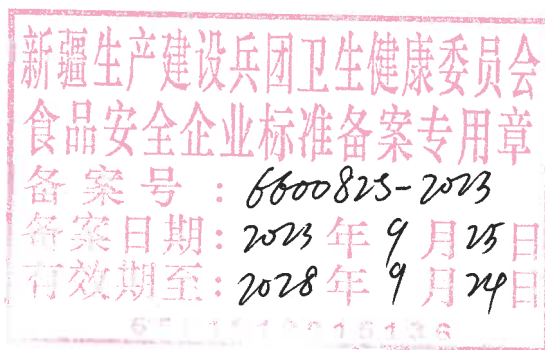 新疆生产建设兵团卫生健康委员会
食品安全企业标准备案专用章
备案号：6600825-2023
备案日期：2023年9月25日
有效期至：2028年9月24日